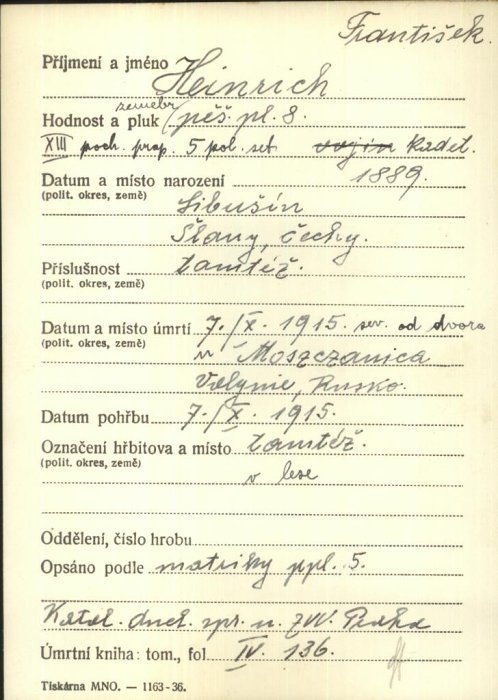 František.
Příjmení a jméno Heinrich
zeměbr.
Hodnost a pluk pěš. pl. 8.
XIII poch. prap. 5 pol. set vojín kadet.
Datum a místo narození 1889.
(polit. okres, země) Libušín
Slaný, Čechy.
Příslušnost tamtéž.
(polit. okres, země)
Datum a místo úmrtí 7./X. 1915. sev. od dvora
(polit. okres, země) u Moszczanica
Volynie, Rusko.
Datum pohřbu 7./X. 1915.
Označení hřbitova a místo tamtéž.
(polit. okres, země) v lese
Oddělení, číslo hrobu
Opsáno podle matriky ppl. 5.
Katol. duch. spr. u ZVV. Praha
Úmrtní kniha: tom., fol. IV. 136.
Tiskárna MNO. — 1163-36.